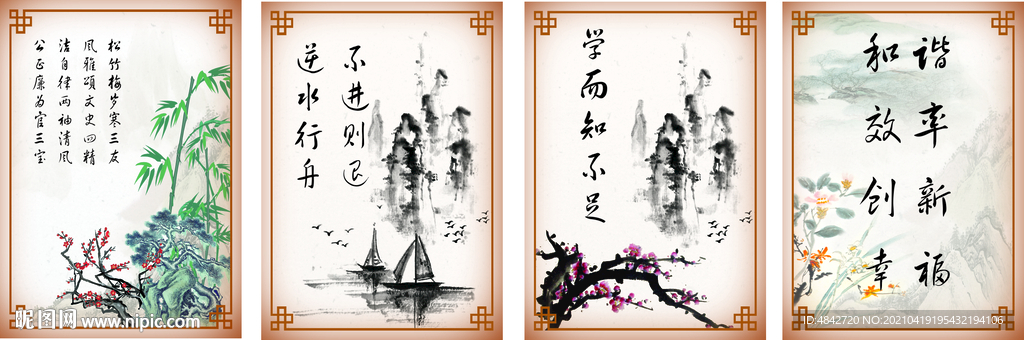 松竹梅岁寒三友
风雅颂文史四精
洁自律两袖清风
公正廉为官三宝
昵图网 www.nipic.com
逆水行舟
不进则退
学而知不足
和谐
效率
创新
幸福
ID:4842720 NO:20210419195432194106